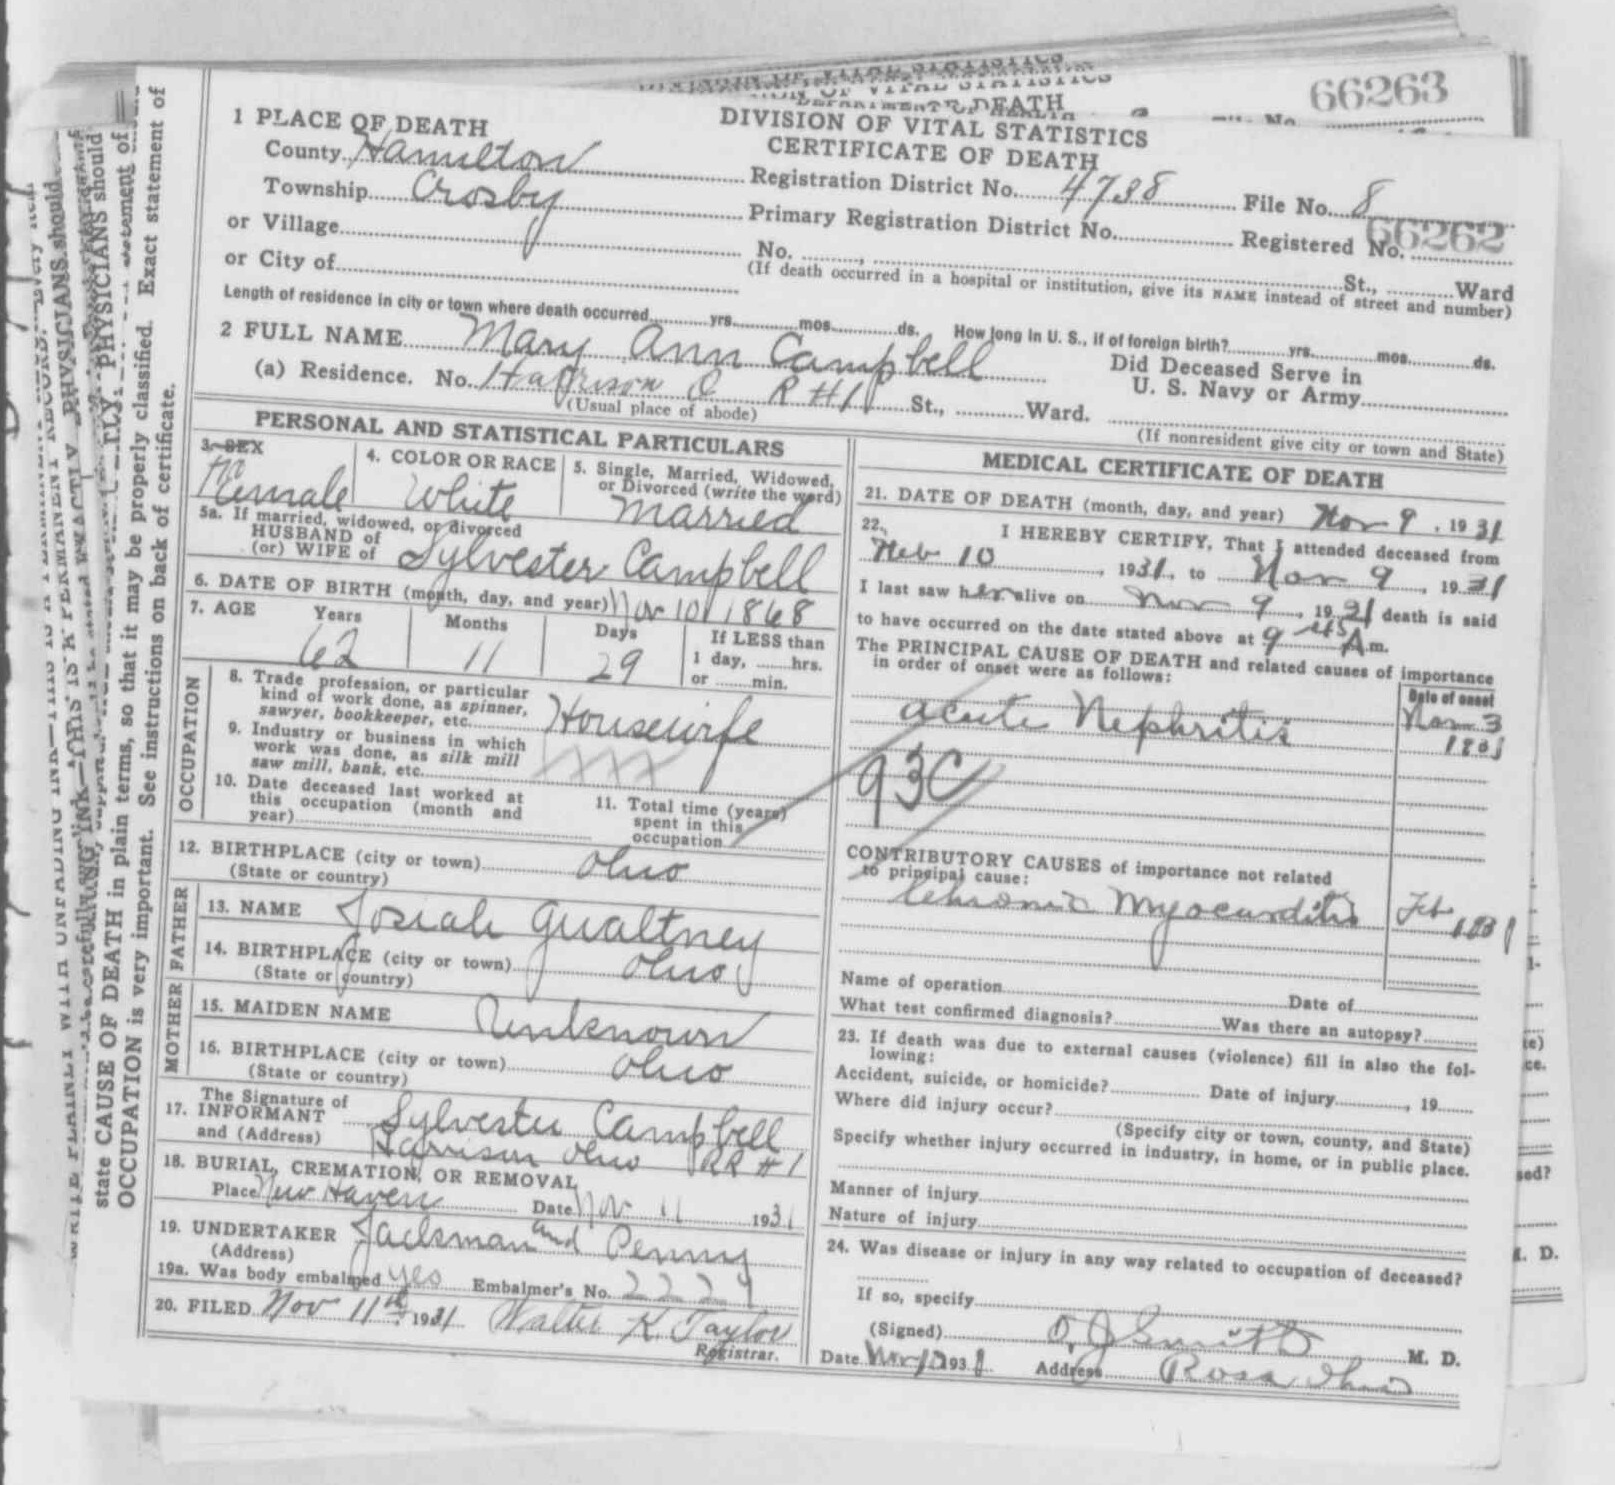 66263
DIVISION OF VITAL STATISTICS
CERTIFICATE OF DEATH
1 PLACE OF DEATH
County Hamilton
Registration District No. 4738 File No. 8
Township Crosby
Primary Registration District No. Registered No. 66262
or Village
No. , St., Ward
or City of
(If death occurred in a hospital or institution, give its NAME instead of street and number)
Length of residence in city or town where death occurred yrs. mos. ds. How long in U. S., if of foreign birth? yrs. mos. ds.
2 FULL NAME Mary Ann Campbell
Did Deceased Serve in
U. S. Navy or Army
(a) Residence. No. Harrison O R #1 St., Ward.
(Usual place of abode)
(If nonresident give city or town and State)
PERSONAL AND STATISTICAL PARTICULARS
3. SEX
Female
4. COLOR OR RACE
White
5. Single, Married, Widowed,
or Divorced (write the word)
Married
5a. If married, widowed, or divorced
HUSBAND of
(or) WIFE of Sylvester Campbell
6. DATE OF BIRTH (month, day, and year) Nov 10 1868
7. AGE Years Months Days If LESS than
62 11 29 1 day, hrs.
or min.
OCCUPATION
8. Trade profession, or particular
kind of work done, as spinner,
sawyer, bookkeeper, etc. Housewife
9. Industry or business in which
work was done, as silk mill
saw mill, bank, etc.
10. Date deceased last worked at
this occupation (month and
year)
11. Total time (years)
spent in this
occupation
12. BIRTHPLACE (city or town) Ohio
(State or country)
FATHER
13. NAME Josiah Gualtney
14. BIRTHPLACE (city or town) Ohio
(State or country)
MOTHER
15. MAIDEN NAME Unknown
16. BIRTHPLACE (city or town) Ohio
(State or country)
The Signature of
17. INFORMANT Sylvester Campbell
and (Address) Harrison Ohio RR #1
18. BURIAL, CREMATION, OR REMOVAL
Place New Haven Date Nov 11 1931
19. UNDERTAKER Jackman and Penny
(Address)
19a. Was body embalmed yes Embalmer's No. 222
20. FILED Nov 11th, 1931 Walter K. Taylor
Registrar.
MEDICAL CERTIFICATE OF DEATH
21. DATE OF DEATH (month, day, and year) Nov 9, 1931
22. I HEREBY CERTIFY, That I attended deceased from
Feb 10, 1931, to Nov 9, 1931
I last saw her alive on Nov 9, 1931 death is said
to have occurred on the date stated above at 9 45 A.m.
The PRINCIPAL CAUSE OF DEATH and related causes of importance
in order of onset were as follows:
Date of onset
acute Nephritis Nov 3
93C
CONTRIBUTORY CAUSES of importance not related
to principal cause:
Chronic Myocarditis Feb
Name of operation Date of
What test confirmed diagnosis? Was there an autopsy?
23. If death was due to external causes (violence) fill in also the fol-
lowing:
Accident, suicide, or homicide? Date of injury , 19
Where did injury occur?
(Specify city or town, county, and State)
Specify whether injury occurred in industry, in home, or in public place.
Manner of injury
Nature of injury
24. Was disease or injury in any way related to occupation of deceased?
If so, specify
(Signed) O J Smith M. D.
Date Nov 1931 Address Ross Ohio
state CAUSE OF DEATH in plain terms, so that it may be properly classified. Exact statement of
OCCUPATION is very important. See instructions on back of certificate.